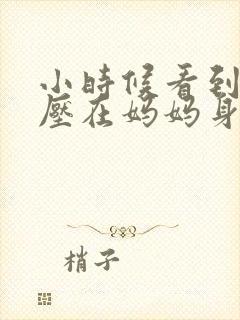 小時候看到
壓在妈妈身
梢子